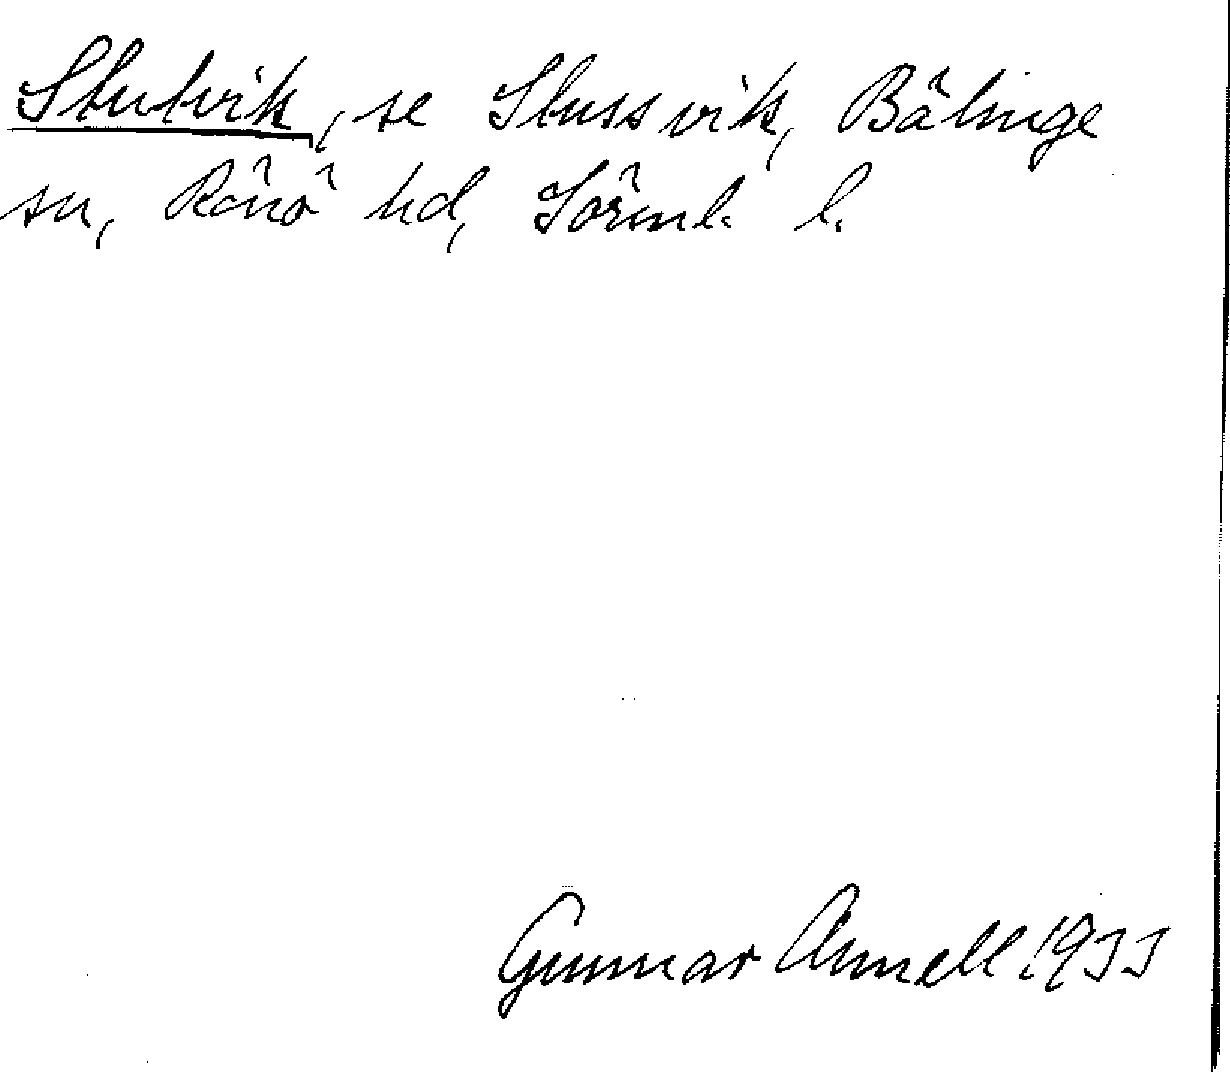 Stutvik, se Stussvik, Bälinge
sn, Rönö hd, Sörml. l.
Gunnar Annell 1933